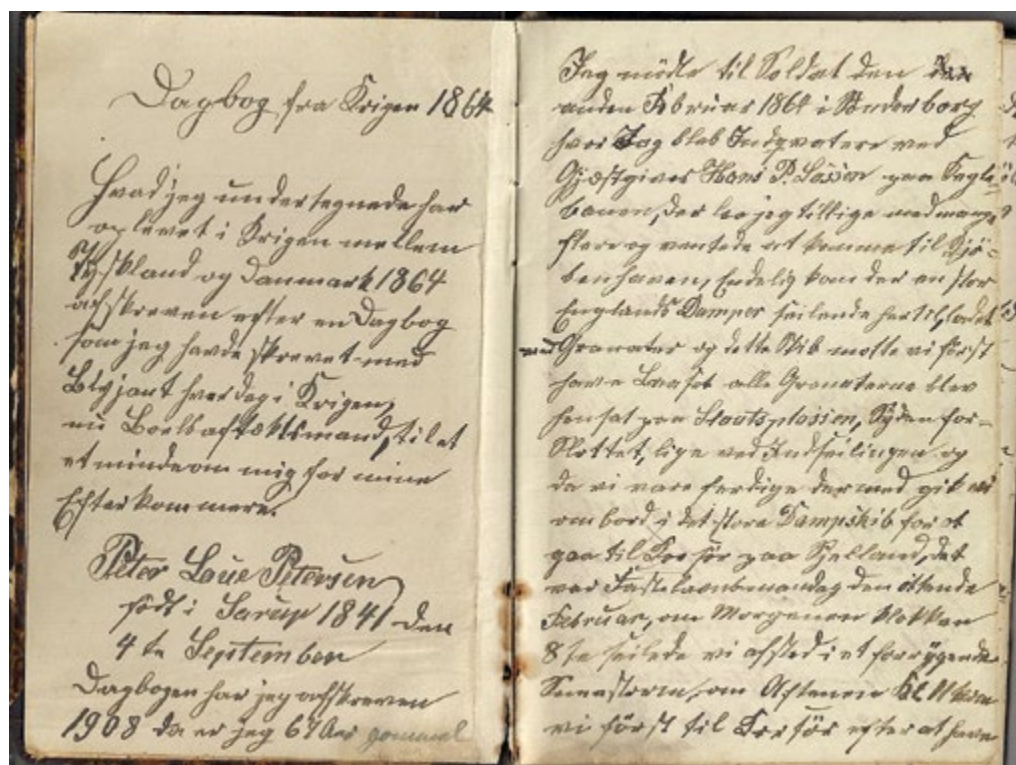 Dagbog fra Krigen 1864
Hvad jeg undertegnede har
oplevet i Krigen mellem
Tyskland og Danmark 1864
afskreven efter en Dagbog
som jeg havde skrevet med
Blyant hver dag i Krigen,
nu Boelsaftægtsmand, til at
et minde om mig for mine
Efterkommere.
Peter Laue Petersen
født i Sarup 1841 den
4 te September
Dagbogen har jeg afskreven
1908 da er jeg 67 Aar gammel
Jeg mödte til Soldat den
anden Februar 1864 i Sønderborg
hvor Jeg blev Indqvatere ved
Gjæstgiver Hans P. Lassen paa Kegle-
banen, der laa jeg tillige med mange
flere og ventede at komme til Kjö-
benhaven, Endelig kom der en stor
Englands Damper seilende hertil, ladet
med Granater og dette Skib motte vi först
have Losset alle Granaterne blev
hensat paa Slautsplassen, Syden for-
Slottet, lige ved Indseilingen og
da vi vare ferdige dermed gik vi
ombord i det store Dampskib for at
gaa til Korsör paa Sjelland, det
var Fastelavnsmandag den ottende
Februar, om Morgenen Klokken
8 te seilede vi afsted i et forrygende
Snestorm, om Aftenen Kl. 11 kom
vi först til Korsör efter at have